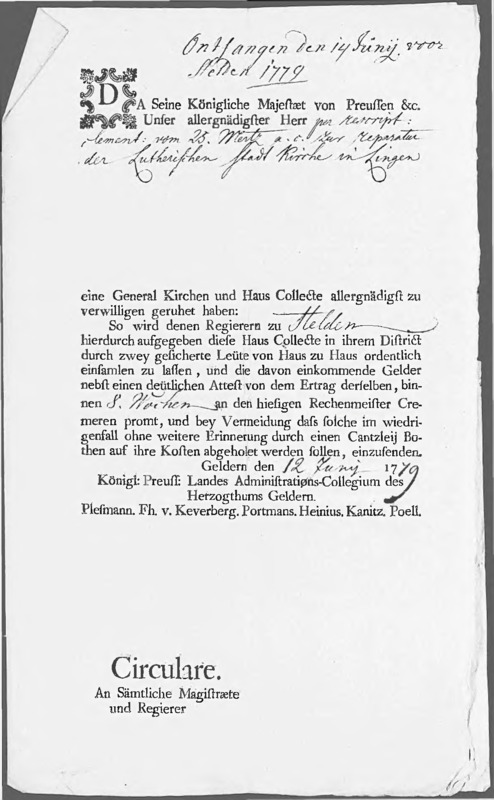 Ontfangen den 14 Junij voor
Helden 1779
DA Seine Königliche Majestæt von Preuſſen &c.
Unſer allergnädigſter Herr per rescript:
clement: vom 25. Mertz a. c. zur reparatur
der Lutheriſchen Stadt Kirche in Lingen
eine General Kirchen und Haus Collecte allergnädigſt zu
verwilligen geruhet haben:
So wird denen Regierern zu Helden
hierdurch aufgegeben dieſe Haus Collecte in ihrem Diſtrict
durch zwey geſicherte Leüte von Haus zu Haus ordentlich
einſamlen zu laſſen, und die davon einkommende Gelder
nebſt einen deütlichen Atteſt von dem Ertrag derſelben, bin-
nen 8. Wochen an den hieſigen Rechenmeiſter Cre-
meren promt, und bey Vermeidung daſs ſolche im wiedri-
genfall ohne weitere Erinnerung durch einen Cantzleij Bo-
then auf ihre Koſten abgeholet werden ſollen, einzuſenden.
Geldern den 12 Junij 1779
Königl: Preuſſ: Landes Adminiſtrations-Collegium des
Hertzogthums Geldern.
Pleſmann. Fh. v. Keverberg. Portmans. Heinius. Kanitz. Poell.
Circulare.
An Sämtliche Magiſtræte
und Regierer